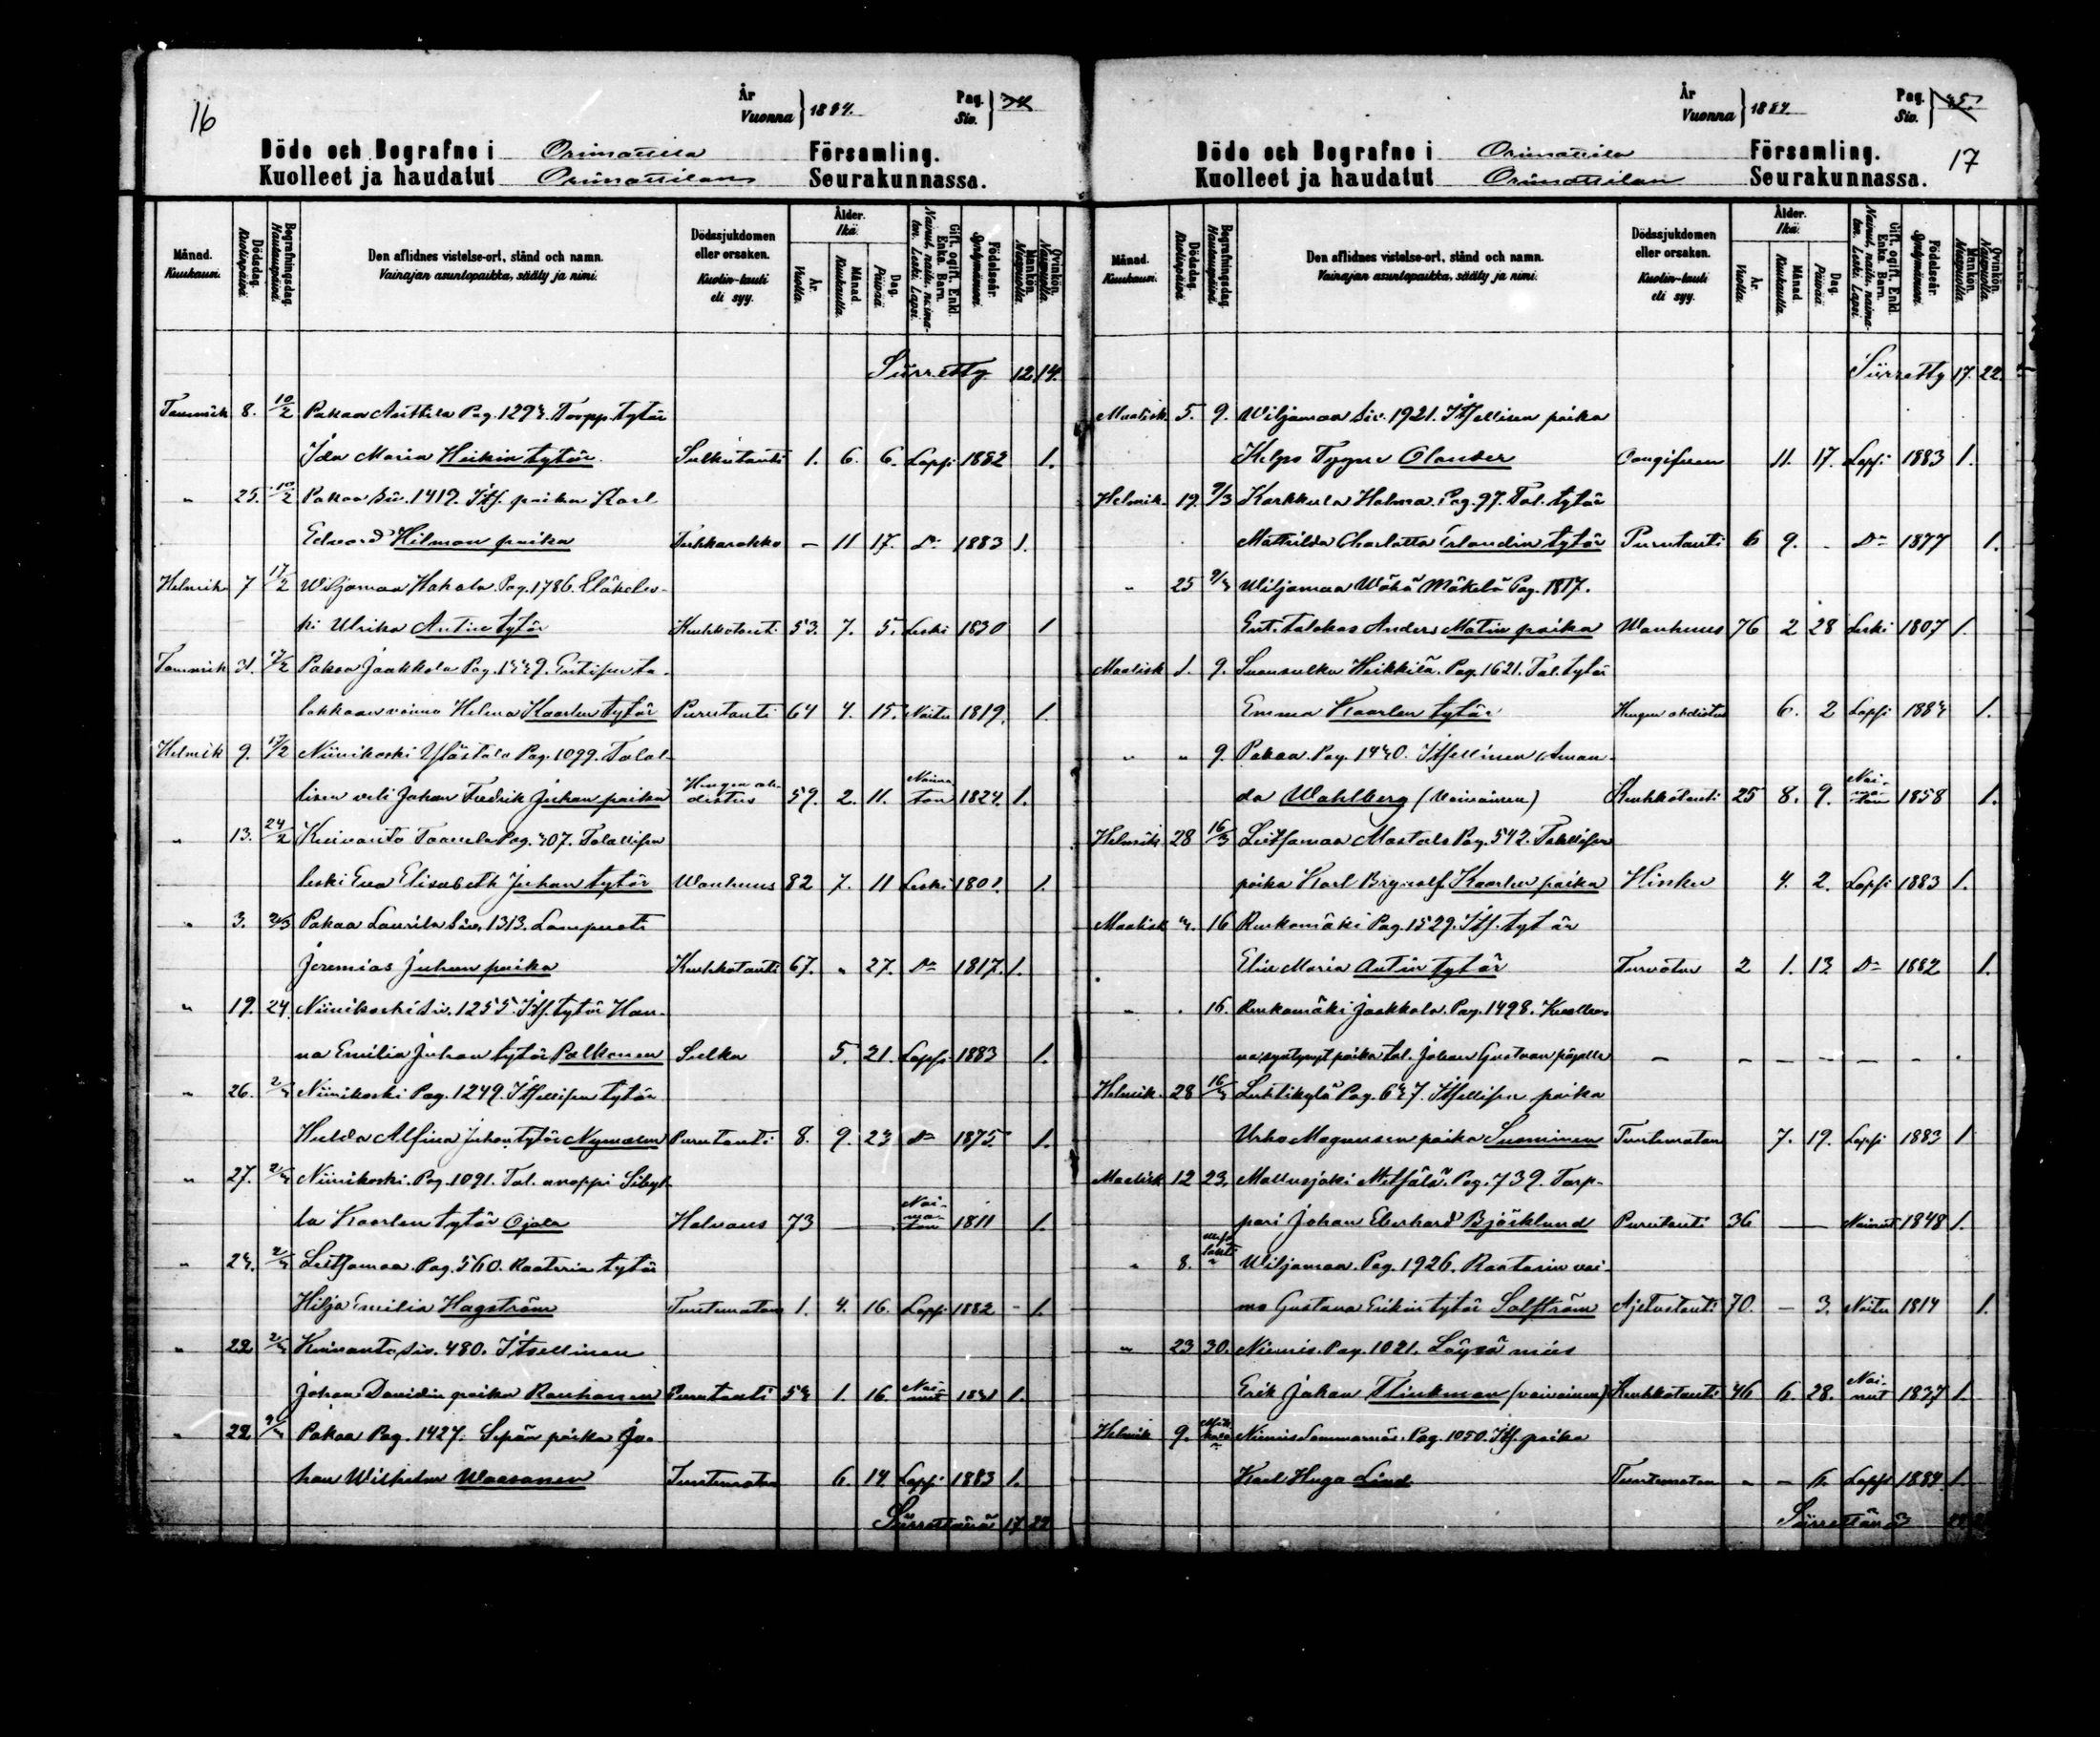 16
År
Vuonna } 1884.
Pag.
Siv. }
Döde och Begrafne i Orimattila Församling.
Kuolleet ja haudatut Orimattilan Seurakunnassa.
Månad. Kuukausi.
Dödsdag. Kuolinpäivä.
Begrafningsdag. Hautauspäivä.
Den aflidnes vistelse-ort, stånd och namn.
Vainajan asuntopaikka, sääty ja nimi.
Dödssjukdomen eller orsaken.
Kuolin-tauti eli syy.
Ålder. Ikä.
År. Vuotta.
Månad. Kuukautta.
Dag. Päivää.
Gift, ogift. Enkl. Enka. Barn.
Nainut, naitu, naimaton. Leski. Lapsi.
Födelseår. Syntymävuosi.
Mankön. Miespuolia.
Qvinkön. Naispuolia.
Siirretty 12 14.
Tammik 8. 10/2 Pakaa Anttila Pag. 1294. Torpp. tytär
Ida Maria Heikin tytär Sulkutauti 1. 6. 6. Lapsi 1882 1.
" 25. 10/2 Pakaa Siv. 1419. Its. poika Karl
Edvard Hilman poika Tuhkarokko – 11 17. Do 1883 1.
Helmik 7 17/2 Wiljamaa Hakala. Pag. 1786. Eläkeles-
ki Ulrika Antin tytär Keuhkotauti 53. 7. 5. Leski 1830 1
Tammik 31. 17/2 Pakaa Jaakkola Pag. 1449. Entisen ta-
lokkaan vaimo Helena Kaarlen tytär Purutauti 64 4. 15. Naitu 1819. 1.
Helmik 9. 17/2 Niinikoski Yläs­talo Pag. 1099. Talal-
lisen veli Johan Fredrik Juhan poika Hengen ah- distus 59. 2. 11. Naima ton 1824. 1.
" 13. 24/2 Kuivanto Pag. 407. Talallisen
leski Eva Elisabeth Juhan tytär Wanhuus 82 7. 11 Leski 1801. 1.
" 3. Pakaa Laurila Siv. 1313. Lampuoti
Jeremias Juhan poika Keuhkotauti 67. " 27. Do 1817. 1.
" 19. 24. Niinikoski Siv. 1255. Its. tytär Han-
na Emilia Juhan tytär Palkonen Sulku 5. 21. Lapsi 1883 1.
" 26. Niinikoski Pag. 1249. Itsellisen tytär
Hulda Alfina Juhan tytär Nyman Purutauti 8. 9. 23 Do 1875 1.
" 27. Niinikoski. Pag. 1091. Tal. anoppi Sibyl-
la Kaarlen tytär Ojala Halvaus 73 Nai- ma- ton 1811 1.
" 24. Leitsamaa. Pag. 560. Raatarin tytär
Hilja Emilia Hagström Tuntematon 1. 4. 16. Lapsi 1882 – 1.
" 22 Kuivanto Siv. 480. Itsellinen
Johan Davidin poika Rauhanen Purutauti 54 1. 16. Nai- nut 1.
" 22 Pakaa Pag. 1427. Sepän poika Jo-
han Wilhelm Waasanen Tuntematon 6. 14 Lapsi 1883 1.
Siirrettävä 17 22
År
Vuonna } 1884.
Pag.
Siv. }
17
Döde och Begrafne i Orimattila Församling.
Kuolleet ja haudatut Orimattilan Seurakunnassa.
Månad. Kuukausi.
Dödsdag. Kuolinpäivä.
Begrafningsdag. Hautauspäivä.
Den aflidnes vistelse-ort, stånd och namn.
Vainajan asuntopaikka, sääty ja nimi.
Dödssjukdomen eller orsaken.
Kuolin-tauti eli syy.
Ålder. Ikä.
År. Vuotta.
Månad. Kuukautta.
Dag. Päivää.
Gift, ogift. Enkl. Enka. Barn.
Nainut, naitu, naimaton. Leski. Lapsi.
Födelseår. Syntymävuosi.
Mankön. Miespuolia.
Qvinkön. Naispuolia.
Siirretty 17. 22.
Maalisk 5. 9. Wiljamaa Siv. 1921. Itsellisen poika
Olander 11. 17. Lapsi 1883 1.
Helmik. 19. 9/3 Karkkula Halma. Pag. 97. Tal. tytär
Mathilda Charlotta Erlandin tytär Purutauti 6 9. – Do 1877 1.
" 25 Wiljamaa Wähä Mäkelä Pag. 1817.
Ent. talokas Anders Matin poika Wanhuus 76 2 28 Leski 1807 1.
Maalisk 1. 9. Heikkilä. Pag. 1621. Tal. tytär
Emma Kaarlen tytär Hengen ahdistus 6. 2 Lapsi 1.
" " 9. Pakaa. Pag. 1440. Itsellinen Aman-
da Wahlberg (Vaivainen) Keuhkotauti 25 8. 9. Nai- ma- ton 1858 1.
Helmik 28 16/3 Leitsamaa Mastola Pag. 542. Talallisen
poika Karl Brynolf Kaarlen poika Hinku 4. 2. Lapsi 1883 1.
Maalisk 4. 16 Ruukomäki Pag. 1529. Its. tytär
Elin Maria Antin tytär Turvotus 2 1. 13 Do 1882 1.
" . 16. Jaakkola. Pag. 1498. Kuollee-
na syntynyt poika tal. Johan Gustaan pojalle – – – – – – .
Helmik. 28 Luhtikylä Pag. 647. Itsellisen poika
Urho Magnusen poika Suominen Tuntematon 7. 19. Lapsi 1883 1
Maalisk 12 23. Mallusjoki Metsälä. Pag. 739. Torp-
pari Johan Eberhard Björklund Purutauti 36 — — Nainut 1848 1.
" 8. Wiljamaa. Pag. 1926. Raatarin vai-
mo Gustava Erikin tytär Salström Ajetustauti 70. – 3. Naitu 1814 1.
" 23 30. Niemis. Pag. 1021. Löysä mies
Erik Johan Flinkman (vaivainen) Keuhkotauti 46 6. 28. Nai- nut 1837 1.
Helmik 9. Niemis Sammarnäs. Pag. 1050. Its. poika
Karl Hugo Lind Tuntematon – – 6. Lapsi 1884. 1.
Siirrettävä